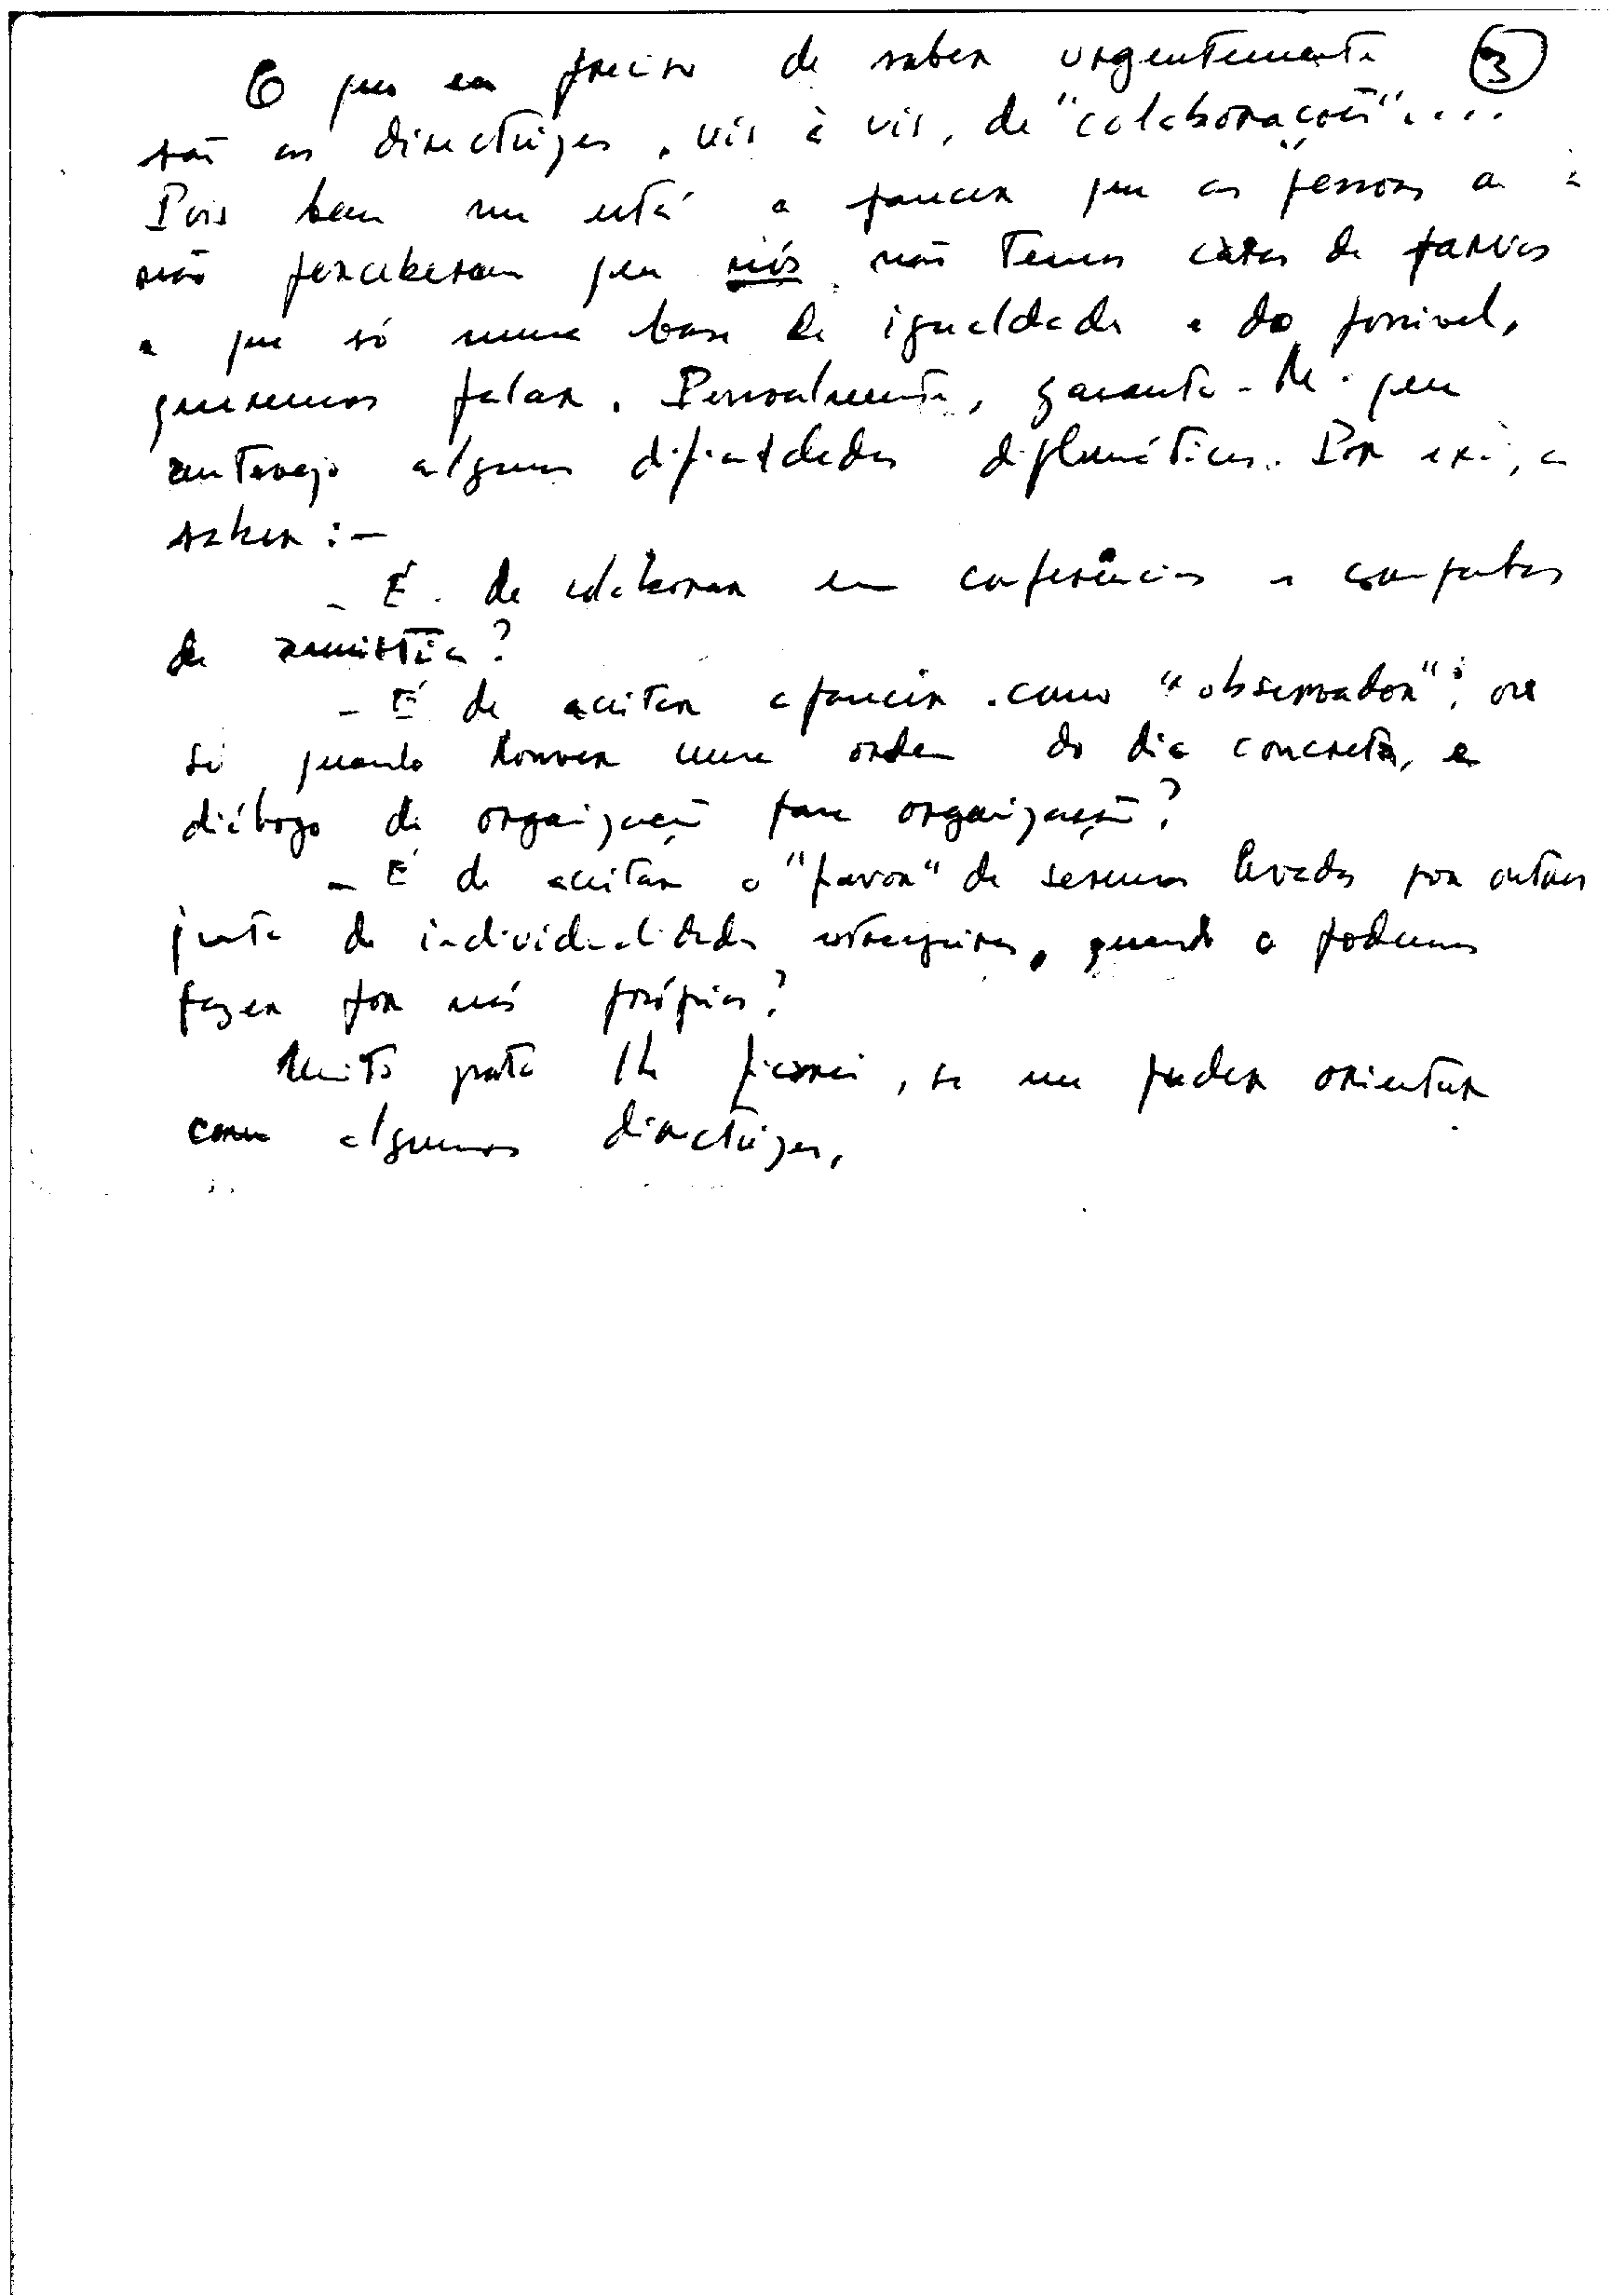 O que eu preciso de saber urgentemente (3)
são as directrizes, vis à vis, de "colaborações"....
Pois bem me está a parecer que as pessoas
não perceberam que nós não temos caras de parvos
e que só numa base de igualdade e do possível,
queremos falar. Pessoalmente, garanto-lhe que
antevejo algumas dificuldades diplomáticas. Por ex:, a
saber:-
- É de colaborar em conferências e campanhas
de amnistia?
- É de aceitar aparecer como "observador"; ou
só quando houver uma ordem do dia concreta, e
diálogo de organização para organização?
- É de aceitar o "favor" de sermos levados por outros
junto de individualidades estrangeiras, quando o podemos
fazer por nós próprios?
Muito grata lhe ficarei, se me puder orientar
com algumas directrizes,